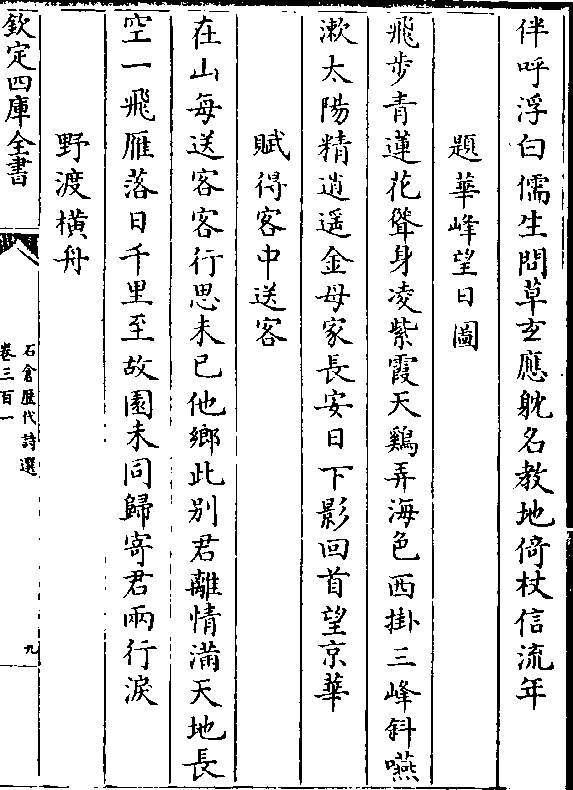 伴呼浮白儒生問草玄應躭名教地倚杖信流年
題華峰望日圖
飛步青蓮花聳身凌紫霞天鷄弄海色西掛三峰斜嚥
漱太陽精逍遥金母家長安日下影回首望京華
賦得客中送客
在山每送客客行思未已他鄉此别君離情滿天地長
空一飛雁落日千里至故園未同歸寄君兩行淚
野渡横舟
欽定四庫全書
石倉歴代詩選
卷三百一
九